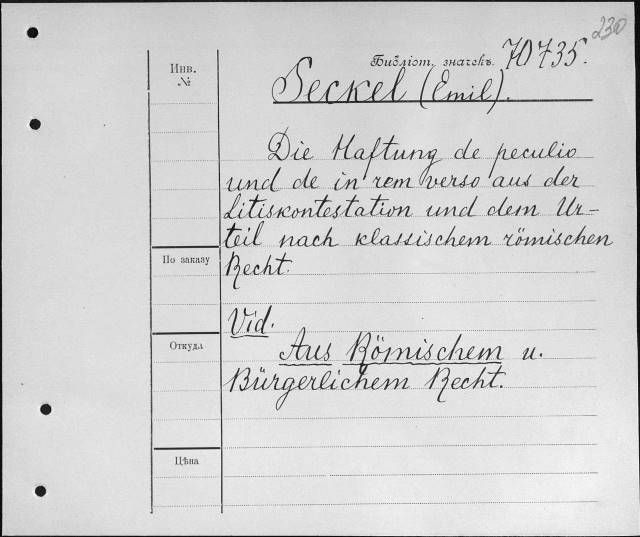 230
Библіот. значекъ. 70735.
Инв.
№
Seckel (Emil).
Die Haftung de peculio
und de in rem verso aus der
Litiskontestation und dem Ur-
teil nach klassischem römischen
Recht.
По заказу
Vid.
Откуда
Aus Römischem u.
Bürgerlichem Recht.
Цѣна